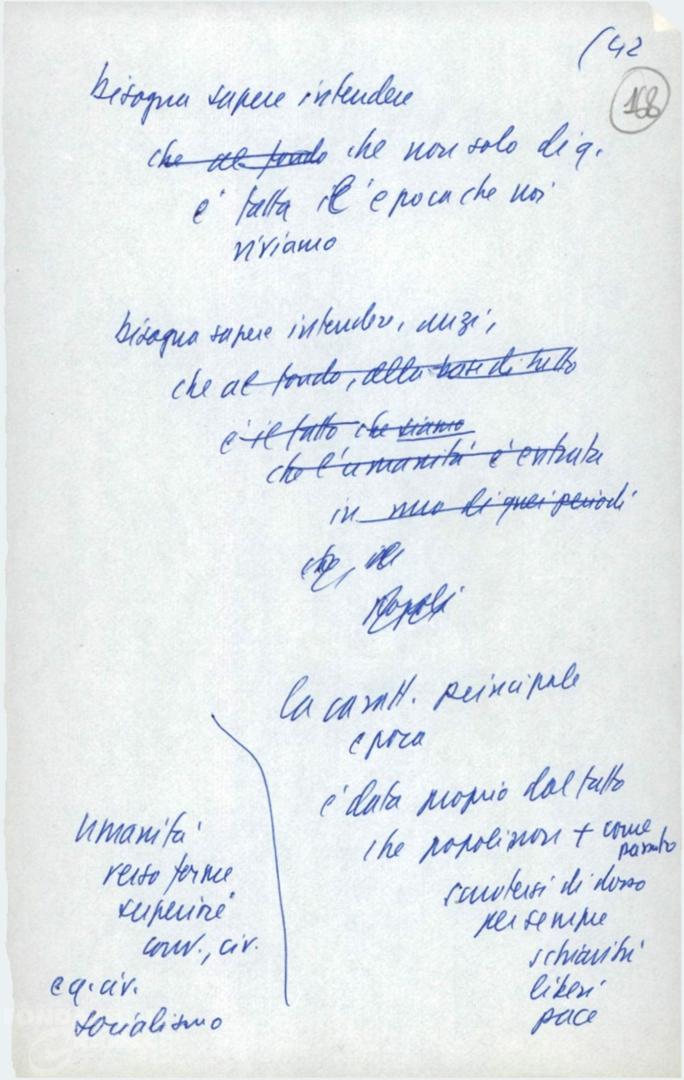 (42
168
bisogna sapere intendere
che al fondo che non solo di q.
è fatta l'epoca che noi
viviamo
bisogna sapere intendere, anzi,
che al fondo, alla base di tutto
è il fatto che siamo
che l'umanità è entrata
in uno di quei periodi
che, i
popoli
la caratt. principale
epoca
è data proprio dal fatto
che popoli non + come
passato
scuotersi di dosso
per sempre
schiavitù
liberi
pace
umanità
verso forme
superiori
conv., civ.
e q. civ.
socialismo